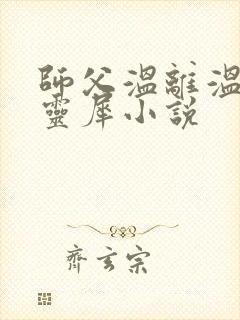 師父溫離溫
靈犀小說
齊玄宗